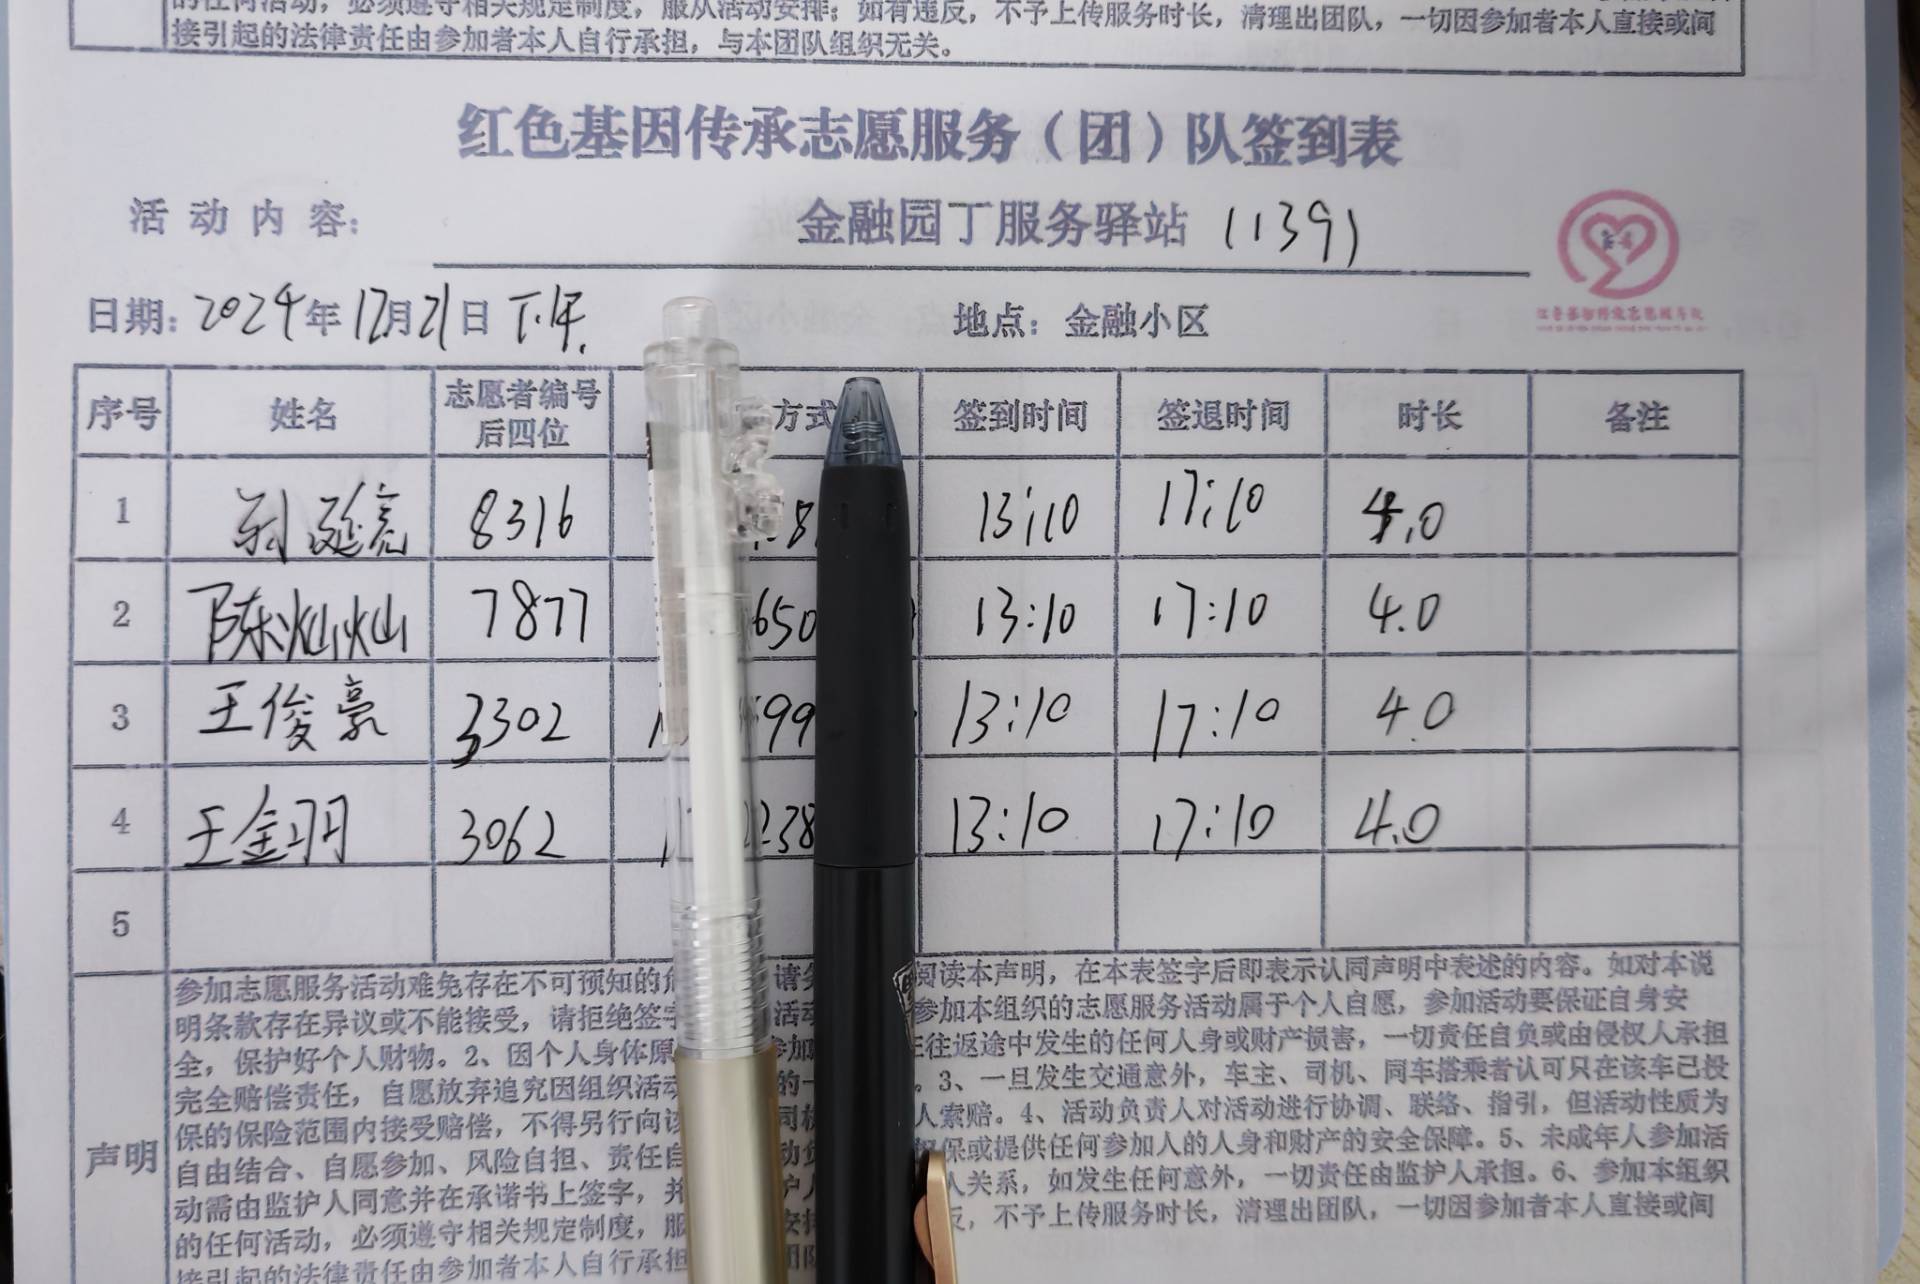 的任何活动，必须遵守相关规定制度，服从活动安排；如有违反，不予上传服务时长，清理出团队，一切因参加者本人直接或间
接引起的法律责任由参加者本人自行承担，与本团队组织无关。
红色基因传承志愿服务（团）队签到表
活动内容： 金融园丁服务驿站 (1391)
日期：2024年12月21日 下午. 地点：金融小区
序号 姓名 志愿者编号后四位 方式 签到时间 签退时间 时长 备注
1 孙延亮 8316 13:10 17:10 4.0
2 陈灿灿 7877 650 13:10 17:10 4.0
3 王俊豪 3302 99 13:10 17:10 4.0
4 王金羽 3062 238 13:10 17:10 4.0
5
声明
参加志愿服务活动难免存在不可预知的 请 阅读本声明，在本表签字后即表示认同声明中表述的内容。如对本说
明条款存在异议或不能接受，请拒绝签字 活 参加本组织的志愿服务活动属于个人自愿，参加活动要保证自身安
全，保护好个人财物。2、因个人身体原 参加 往返途中发生的任何人身或财产损害，一切责任自负或由侵权人承担
完全赔偿责任，自愿放弃追究因组织活动 的一 。3、一旦发生交通意外，车主、司机、同车搭乘者认可只在该车已投
保的保险范围内接受赔偿，不得另行向该 司 人索赔。4、活动负责人对活动进行协调、联络、指引，但活动性质为
自由结合、自愿参加、风险自担、责任自 动 担保或提供任何参加人的人身和财产的安全保障。5、未成年人参加活
动需由监护人同意并在承诺书上签字，并 护 人关系，如发生任何意外，一切责任由监护人承担。6、参加本组织
的任何活动，必须遵守相关规定制度，服 安排 反，不予上传服务时长，清理出团队，一切因参加者本人直接或间
接引起的法律责任由参加者本人自行承担 团队